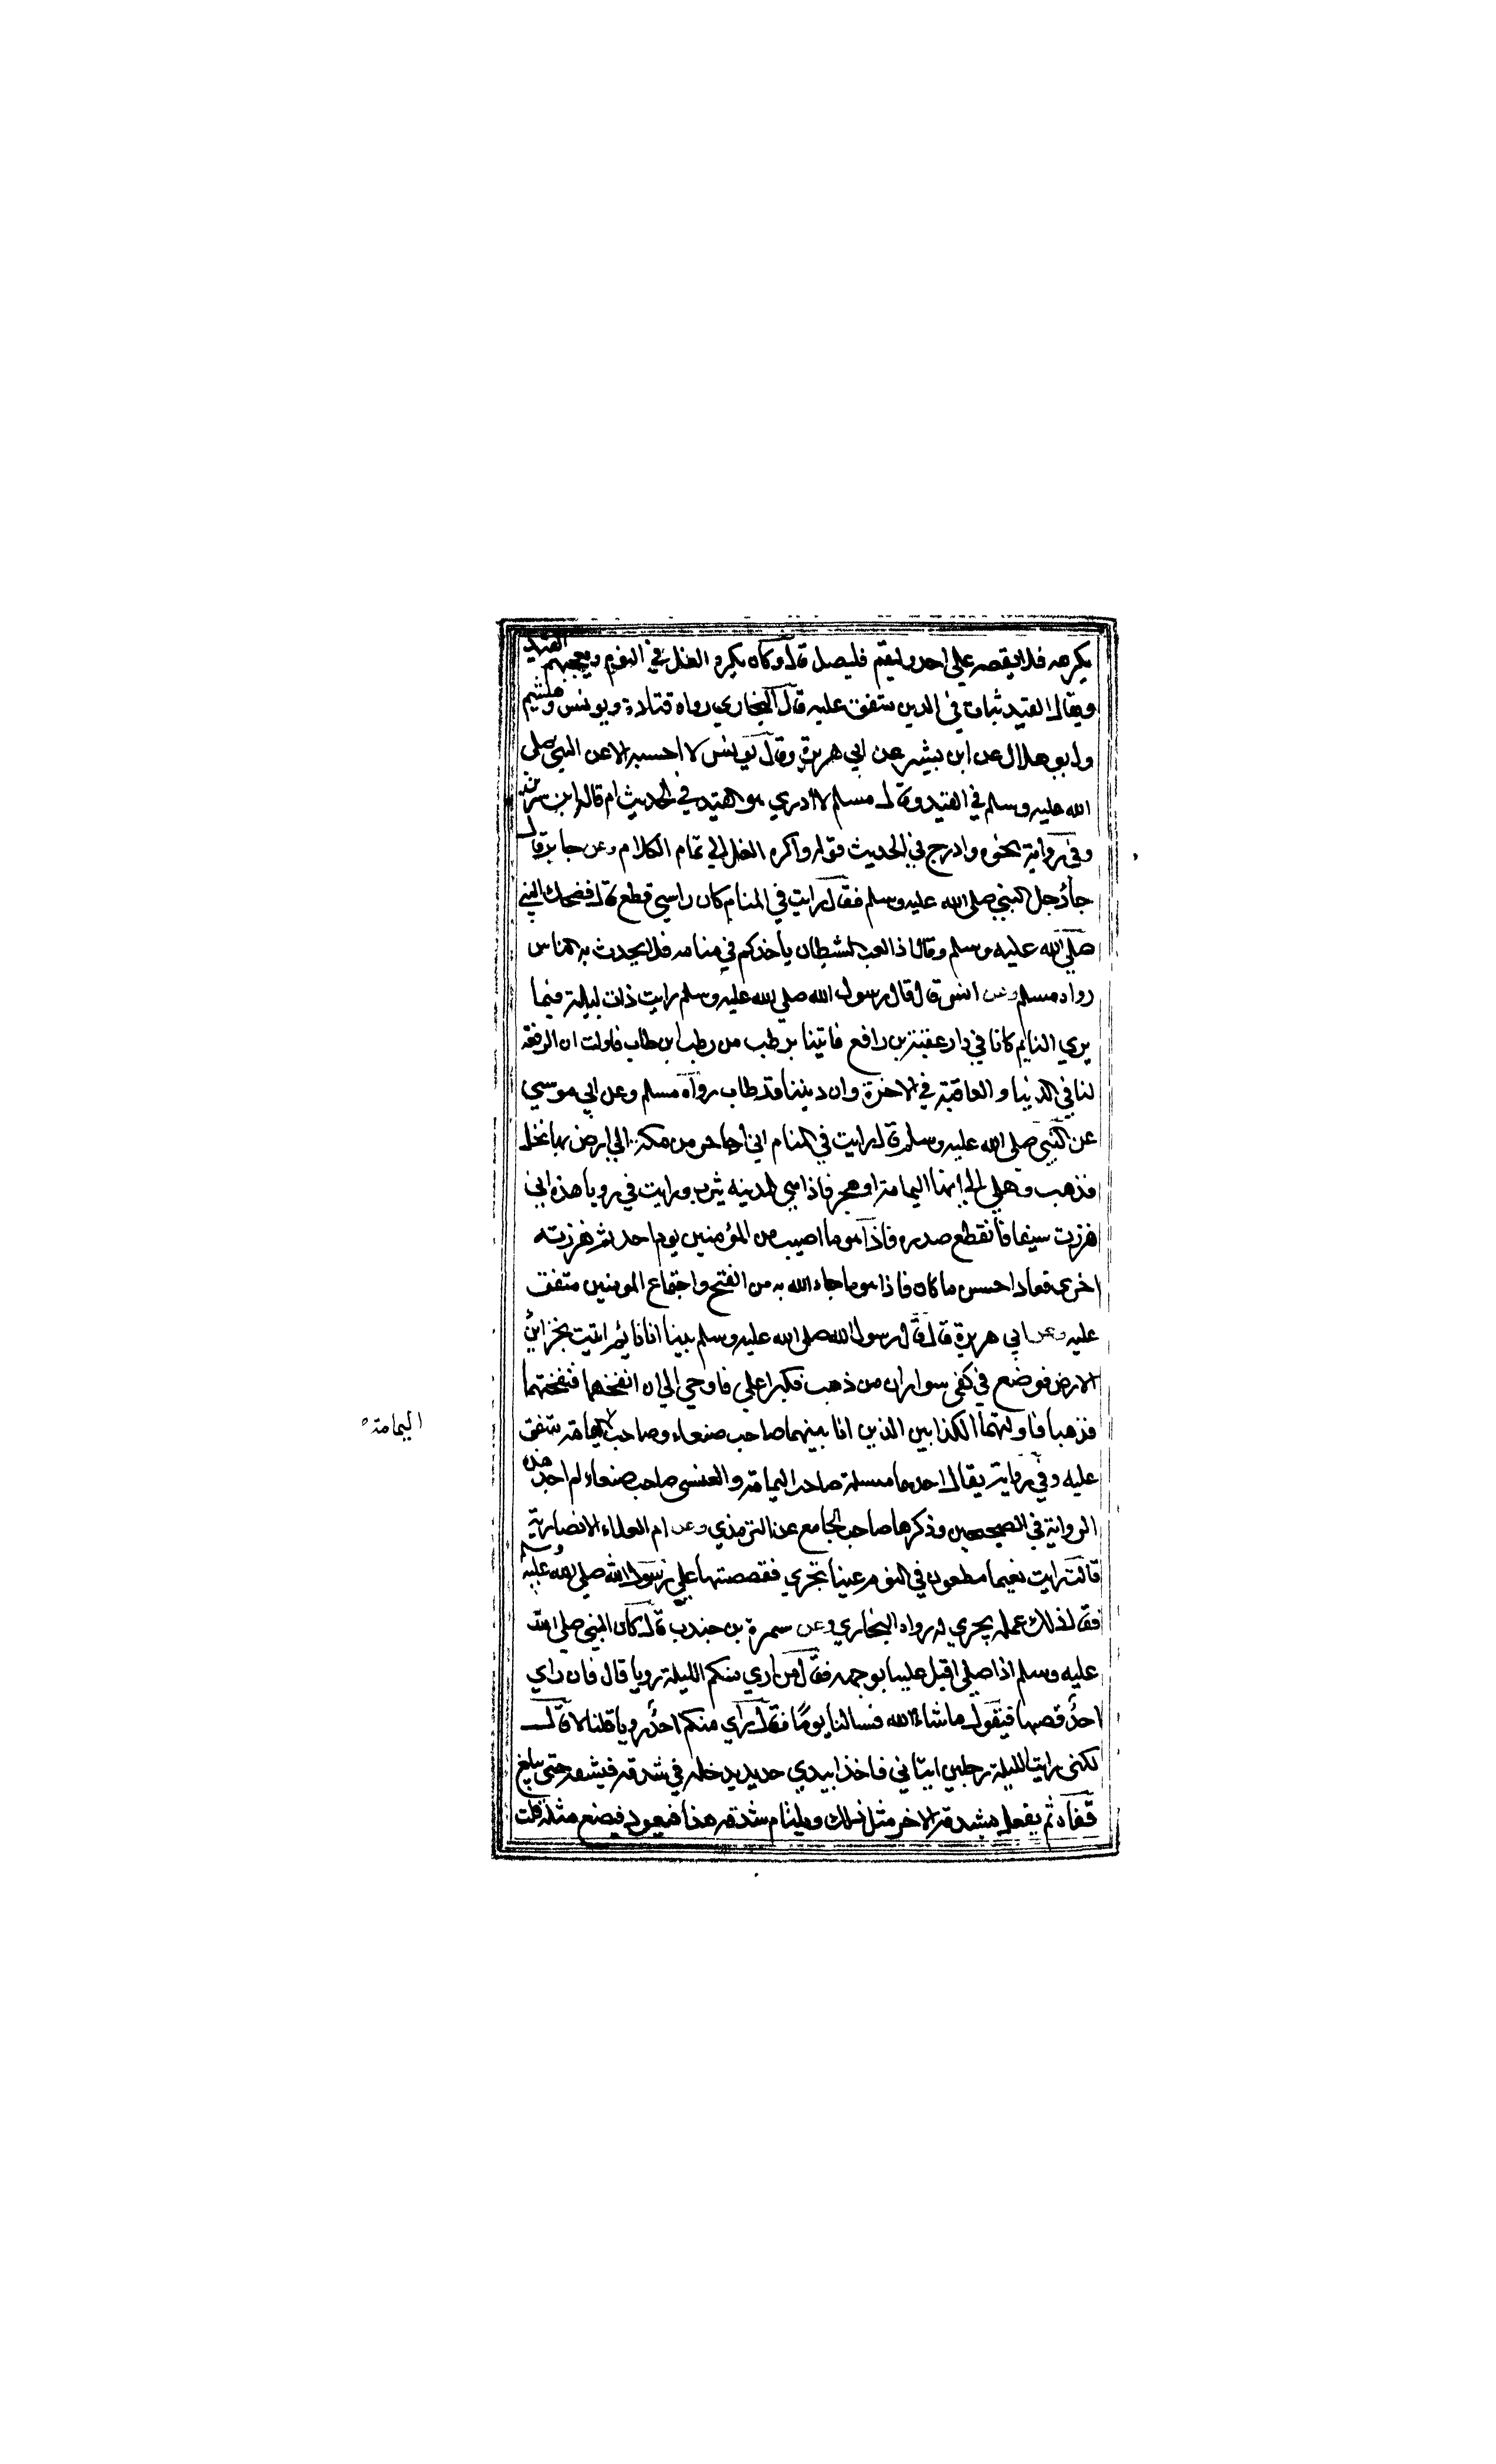 يكرهه فلا يقصه علي احد وليقم فليصل قال وكان يكره الغل في النوم ويعجبهم القيد
ويقال القيد ثبات في الدين متفق عليه قال البخاري رواه قتادة ويونس وهشيم
وابو هلال عن ابن بشير عن ابي هريرة وقال يونس لا احسبه الا عن النبي صلى
الله عليه وسلم في القيد وقال مسلم لا ادري هو في الحديث ام قاله ابن سيرين
وفي رواية نحوه وادرج في الحديث قوله واكره الغل الي تمام الكلام وعن جابر قال
جاء رجل النبي صلى الله عليه وسلم فقال رايت في المنام كان راسي قطع قال فضحك النبي
صلي الله عليه وسلم وقال اذا لعب الشيطان باحدكم في منامه فلا يحدث به الناس
رواه مسلم وعن انس قال قال رسول الله صلي الله عليه وسلم رايت ذات ليلة فيما
يري النايم كانا في دار عقبة بن رافع فاتينا برطب من رطب ابن طاب فاولت ان الرفعة
لنا في الدنيا والعاقبة في الاخرة وان ديننا قد طاب رواه مسلم وعن ابي موسي
عن النبي صلى الله عليه وسلم قال رايت في المنام اني اهاجر من مكة الي ارض بها نخل
فذهب وهلي الي انها اليمامة او هجر فاذا هي المدينه يثرب ورايت في روياي هذه اني
هززت سيفا فانقطع صدره فاذا هو ما اصيب من المؤمنين يوم احد ثم هززته
اخري فعاد احسن ما كان فاذا هو ما جاء الله به من الفتح واجتماع المومنين متفق
عليه وعن ابي هريرة قال قال رسول الله صلى الله عليه وسلم بينا انا نايم اتيت بخزائن
الارض فوضع في كفي سواران من ذهب فكبرا علي فاوحي الي ان انفخهما فنفختهما
فذهبا فاولتهما الكذابين الذين انا بينهما صاحب صنعاء وصاحب اليمامة متفق
اليمامة
عليه وفي رواية يقال احدهما مسيلمة صاحب اليمامة والعنسي صاحب صنعاء لم اجد هذه
الرواية في الصحيحين وذكرها صاحب الجامع عن الترمذي وعن ام العلاء الانصارية
قالت رايت لعثمان بن مظعون في النوم عينا تجري فقصصتها علي رسول الله صلى الله عليه وسلم
فقال ذلك عمله يجري له رواه البخاري وعن سمرة بن جندب قال كان النبي صلى الله
عليه وسلم اذا صلي اقبل علينا بوجهه فقال من راي منكم الليلة رويا قال فان راي
احد قصها فيقول ما شاء الله فسالنا يوما فقال راي منكم احد رويا قلنا لا قال
لكني رايت الليلة رجلين اتياني فاخذا بيدي حديد يدخله في شدقه فيشقه حتى يبلغ
قفاه ثم يفعل بشدقه الاخر مثل ذلك ويلتئام شدقه هذا فيعود فيصنع مثله قلت